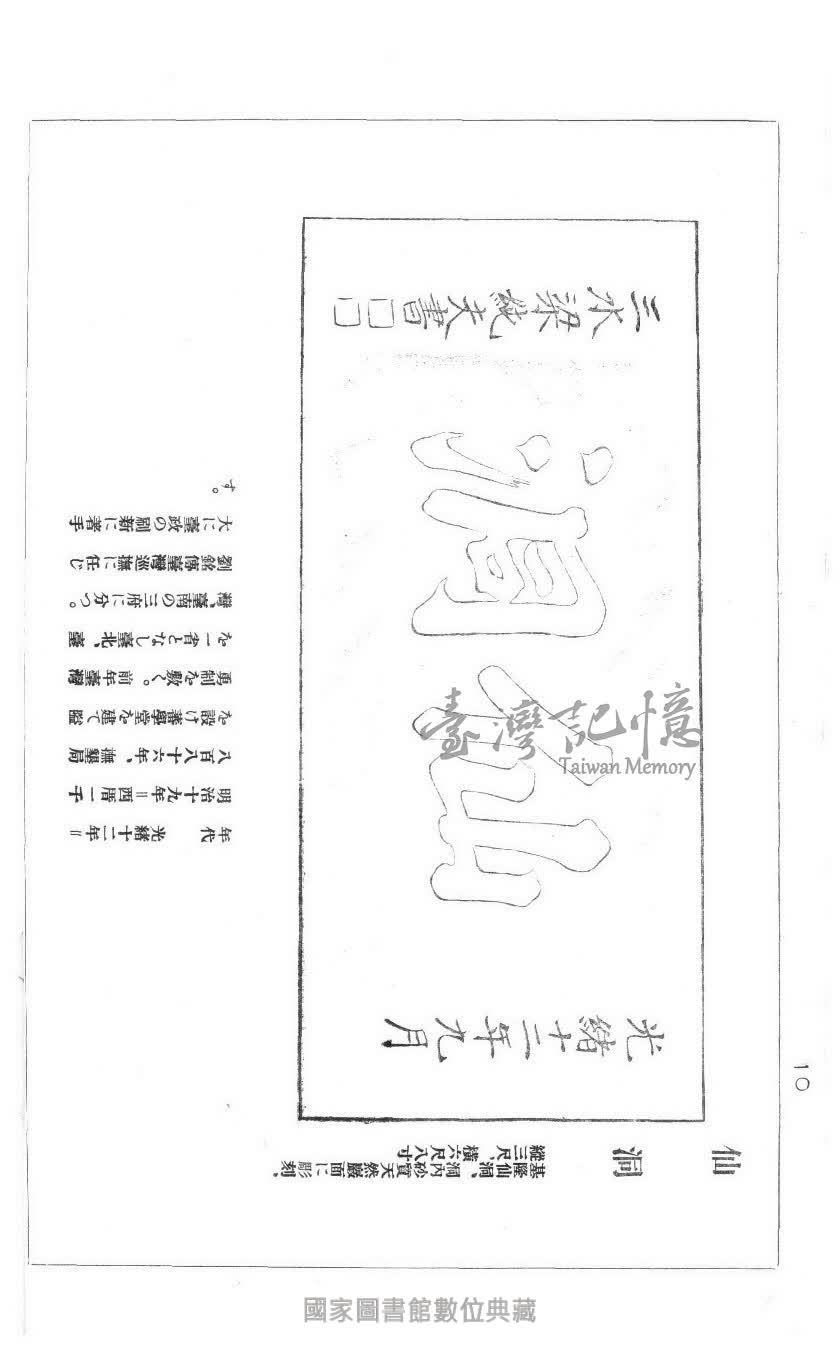 仙洞
基隆仙洞、洞內砂質天然巖面に彫刻、
縱三尺、橫六尺八寸
光緒十二年九月
仙洞
三水梁純夫書□□
年代 光緒十二年＝
明治十九年＝西曆一千
八百八十六年、撫墾局
を設け蕃學堂を建て隘
勇制を敷く。前年臺灣
を一省となし臺北、臺
灣、臺南の三府に分つ。
劉銘傳臺灣巡撫に任じ
大に臺政の刷新に著手
す。
10
臺灣記憶
Taiwan Memory
國家圖書館數位典藏